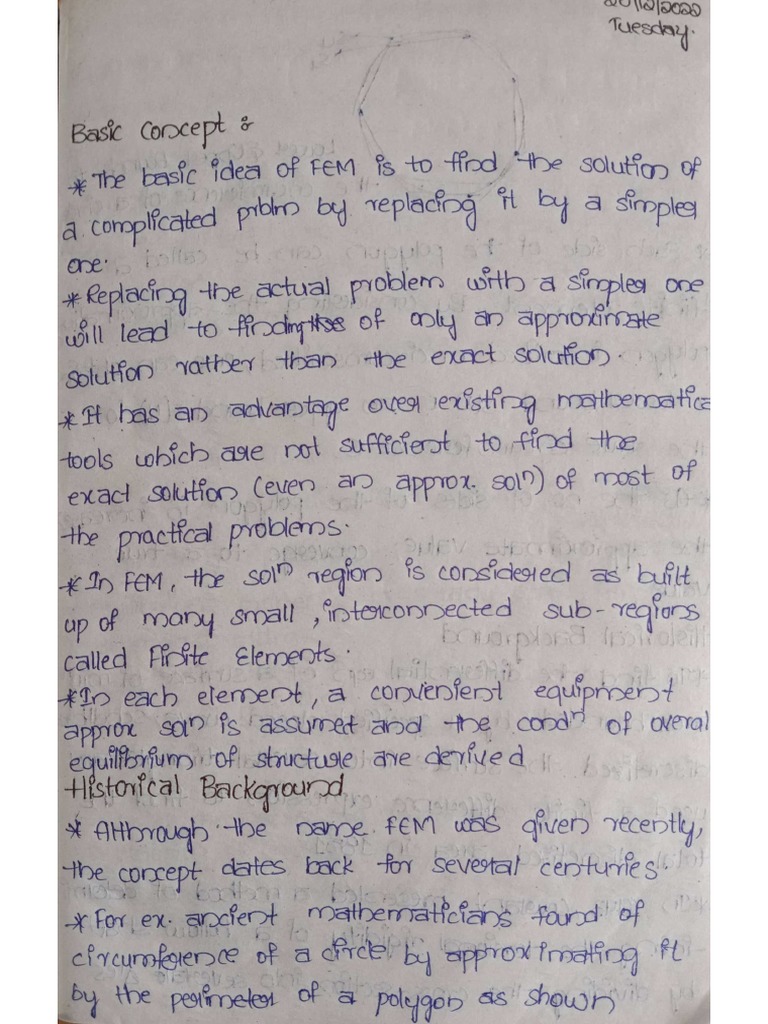 20/12/2022
Tuesday.
Basic Concept :
* The basic idea of FEM is to find the solution of
a complicated prblm by replacing it by a simpler
one.
* Replacing the actual problem with a simpler one
will lead to finding of only an approximate
solution rather than the exact solution.
* It has an advantage over existing mathematica
tools which are not sufficient to find the
exact solution (even an approx. solⁿ) of most of
the practical problems.
* In FEM, the solⁿ region is considered as built
up of many small, interconnected sub-regions
called Finite Elements.
* In each element, a convenient equipment
approx solⁿ is assumet and the condⁿ of overal
equilibrium of structure are derived
Historical Background
* Althrough the name FEM was given recently,
the concept dates back for several centuries.
* For ex. ancient mathematicians found of
circumference of a circle by approximating it
by the perimeter of a polygon as shown